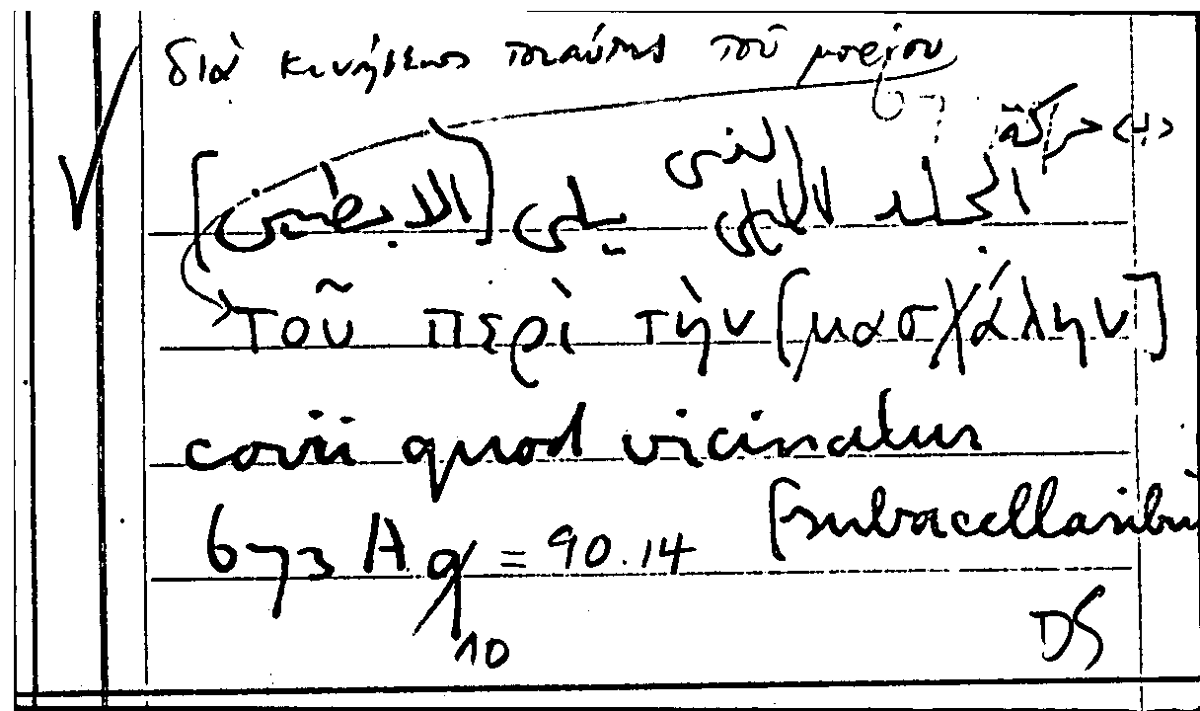 διὰ κινήσεως τοιαύτης τοῦ μορίου
<ب> حركة
الجلد الذى يلى [الابطين]
τοῦ περὶ τὴν [μασχάλην]
corii quod vicinatur
[subacellaribu
673 A 9 = 90.14
10
DS